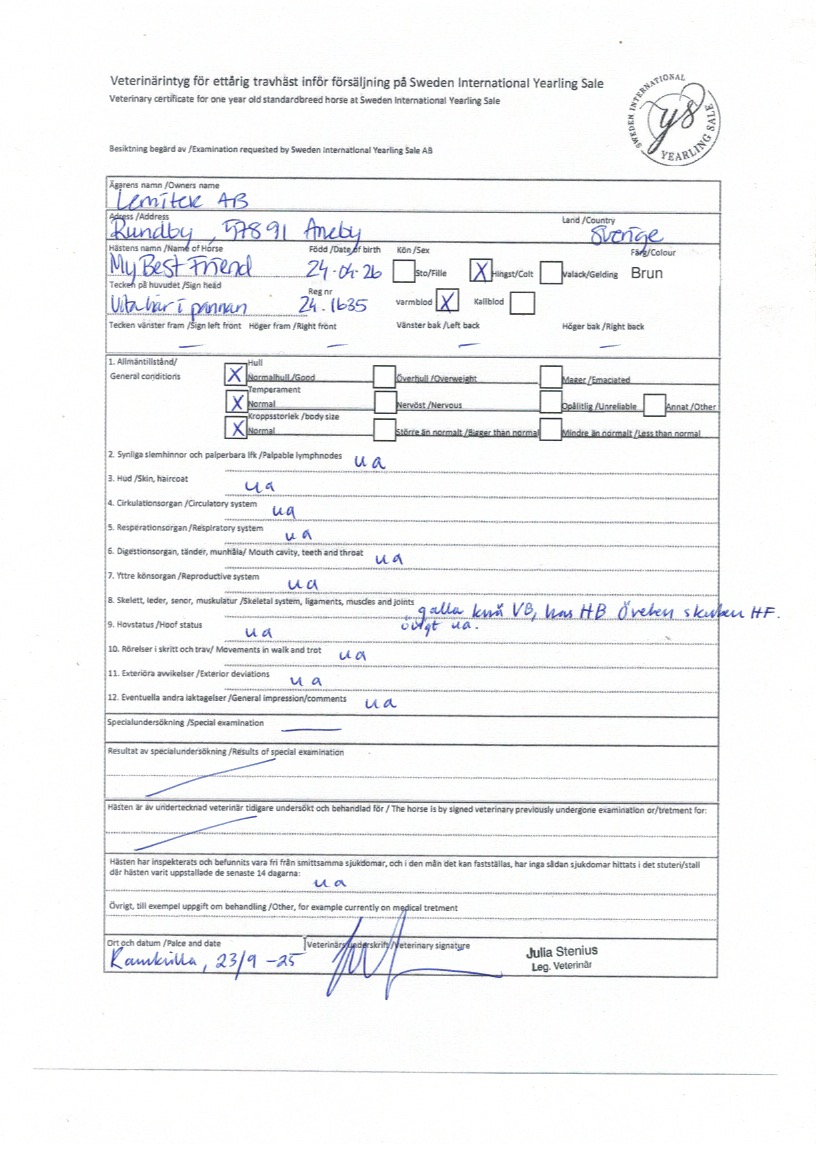 Veterinärintyg för ettårig travhäst inför försäljning på Sweden International Yearling Sale
Veterinary certificate for one year old standardbreed horse at Sweden International Yearling Sale
SWEDEN INTERNATIONAL YEARLING SALE
ys
Besiktning begärd av /Examination requested by Sweden International Yearling Sale AB
Ägarens namn /Owners name
Lemitek AB
Adress /Address
Land /Country
Rundby, 57891 Aneby
Sverige
Hästens namn /Name of Horse Född /Date of birth Kön /Sex Färg/Colour
My Best Friend 24-04-26 Sto/Fille X Hingst/Colt Valack/Gelding Brun
Tecken på huvudet /Sign head Reg nr
Vita hår i pannan 24-1635 Varmblod X Kallblod
Tecken vänster fram /Sign left front Höger fram /Right front Vänster bak /Left back Höger bak /Right back
— — — —
1. Allmäntillstånd/ Hull
General conditions X Normalhull /Good Överhull /Overweight Mager /Emaciated
Temperament
X Normal Nervöst /Nervous Opålitlig /Unreliable Annat /Other
Kroppsstorlek /body size
X Normal Större än normalt /Bigger than normal Mindre än normalt /Less than normal
2. Synliga slemhinnor och palperbara lfk /Palpable lymphnodes ua
3. Hud /Skin, haircoat ua
4. Cirkulationsorgan /Circulatory system ua
5. Resperationsorgan /Respiratory system ua
6. Digestionsorgan, tänder, munhåla/ Mouth cavity, teeth and throat ua
7. Yttre könsorgan /Reproductive system ua
8. Skelett, leder, senor, muskulatur /Skeletal system, ligaments, muscles and joints galla knä VB, has HB Överben HF.
övrigt ua.
9. Hovstatus /Hoof status ua
10. Rörelser i skritt och trav/ Movements in walk and trot ua
11. Exteriöra avvikelser /Exterior deviations ua
12. Eventuella andra iaktagelser /General impression/comments ua
Specialundersökning /Special examination —
Resultat av specialundersökning /Results of special examination
Hästen är av undertecknad veterinär tidigare undersökt och behandlad för / The horse is by signed veterinary previously undergone examination or/tretment for:
Hästen har inspekterats och befunnits vara fri från smittsamma sjukdomar, och i den mån det kan fastställas, har inga sådan sjukdomar hittats i det stuteri/stall
där hästen varit uppstallade de senaste 14 dagarna:
ua
Övrigt, till exempel uppgift om behandling /Other, for example currently on medical tretment
Ort och datum /Palce and date Veterinärs underskrift /Veterinary signature
Ramkvilla, 23/9 -25
Julia Stenius
Leg. Veterinär